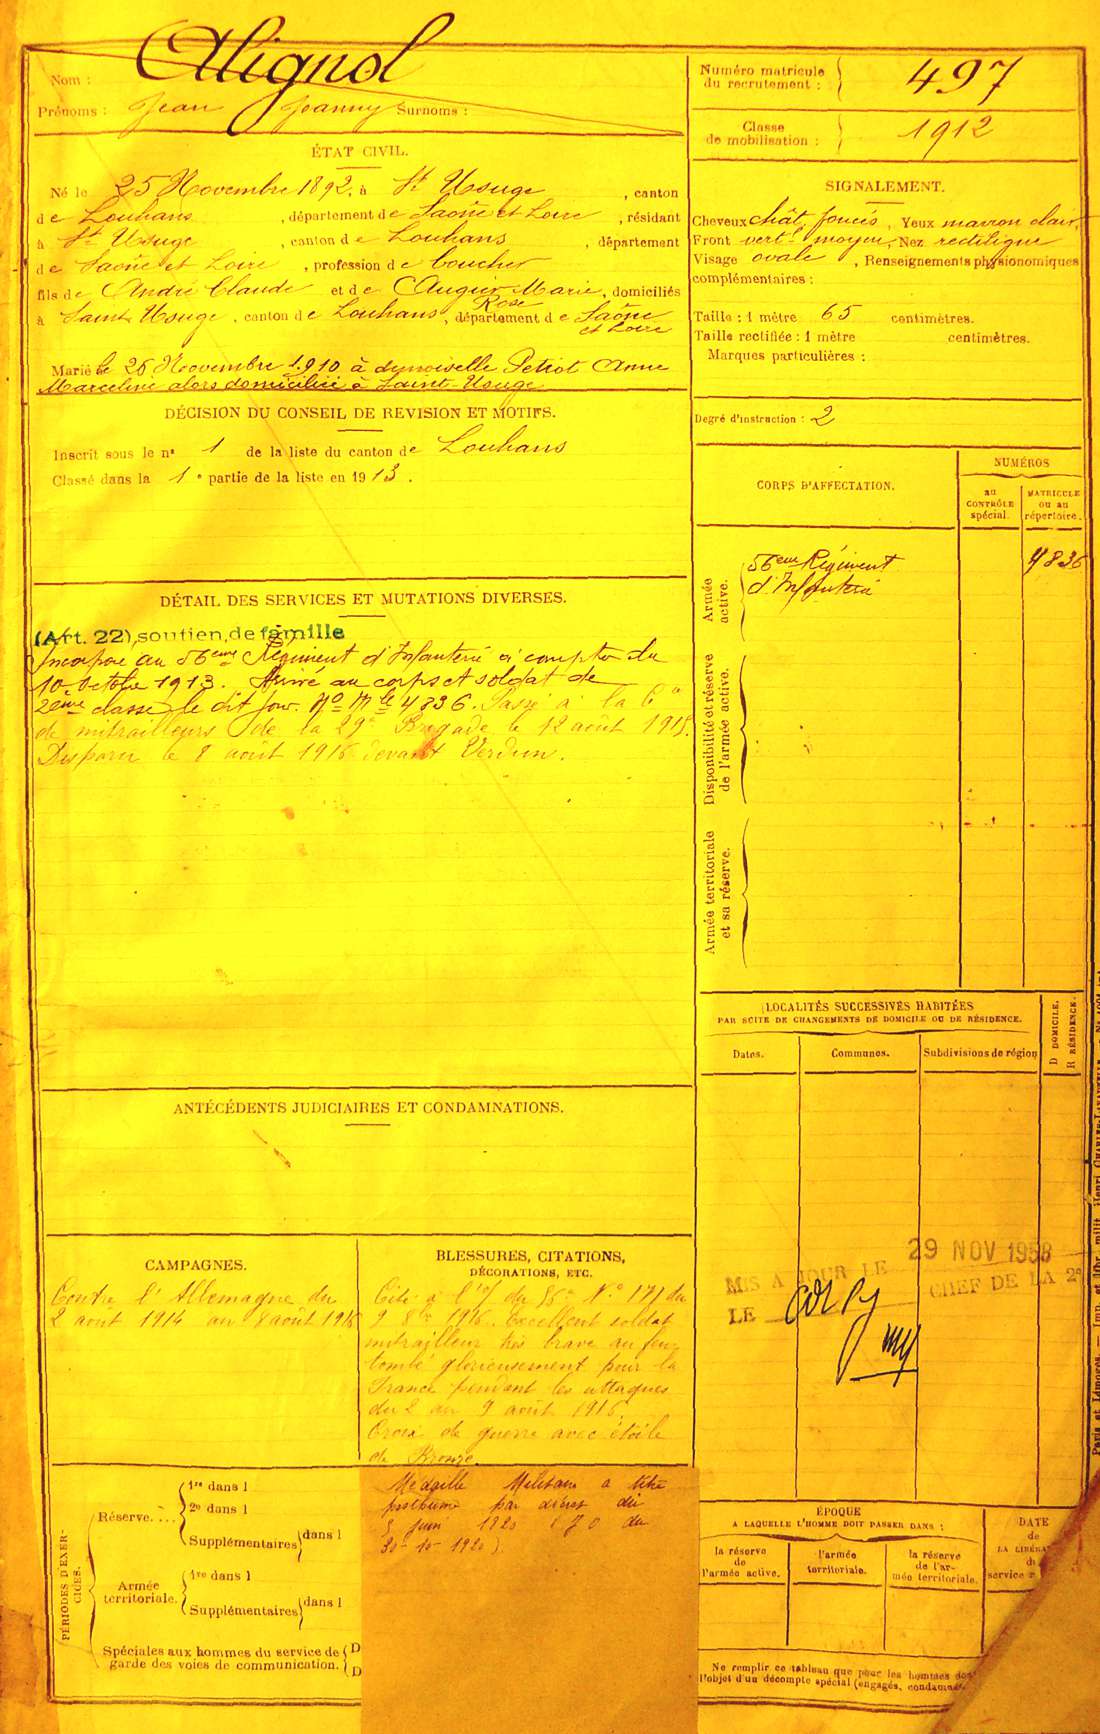 Nom : Alignol
Prénoms : Jean Joanny Surnoms :
ÉTAT CIVIL.
Né le 25 Novembre 1892, à St Usuge, canton
de Louhans, département de Saône et Loire, résidant
à St Usuge, canton de Louhans, département
de Saône et Loire, profession de
fils de André Claude et de Augur Marie, domiciliés
Rose
à Saint Usuge, canton de Louhans, département de Saône
et Loire
Marié le 26 Novembre 1910 à demoiselle Petiot Anne
Marceline alors domiciliée à Saint-Usuge
DÉCISION DU CONSEIL DE REVISION ET MOTIFS.
Inscrit sous le nº 1 de la liste du canton de Louhans
Classé dans la 1e partie de la liste en 1913.
DÉTAIL DES SERVICES ET MUTATIONS DIVERSES.
(Art. 22) soutien de famille
Incorporé au 56eme Régiment d'Infanterie à compter du
10 octobre 1913. Arrivé au corps et soldat de
2eme classe le dit jour. No Mle 4836. Passé à la Cie
de mitrailleurs de la 29e Brigade le 12 août 1915.
Disparu le 8 août 1916 devant Verdun.
ANTÉCÉDENTS JUDICIAIRES ET CONDAMNATIONS.
CAMPAGNES.
Contre l'Allemagne du
2 août 1914 au 8 août 1916
BLESSURES, CITATIONS,
DÉCORATIONS, ETC.
Cité à l'o/ du No 171 du
9 8bre 1916. Excellent soldat
mitrailleur très brave au feu
tombé glorieusement pour la
France pendant les attaques
du 2 au 9 août 1916.
Croix de guerre avec étoile
de Bronze.
Médaille Militaire à titre
posthume par décret du
5 juin 1920 (J O du
30-10-1920).
PÉRIODES D'EXERCICES.
Réserve....
1re dans 1
2e dans 1
Supplémentaires dans 1
Armée
territoriale.
1re dans 1
Supplémentaires dans 1
Spéciales aux hommes du service de
garde des voies de communication.
D
D
Numéro matricule
du recrutement : 497
Classe
de mobilisation : 1912
SIGNALEMENT.
Cheveux chât. foncés, Yeux marron clair,
Front vert.l moyen, Nez rectiligne
Visage ovale, Renseignements physionomiques
complémentaires :
Taille : 1 mètre 65 centimètres.
Taille rectifiée : 1 mètre centimètres.
Marques particulières :
Degré d'instruction : 2
CORPS D'AFFECTATION.
NUMÉROS
au
CONTRÔLE
spécial.
MATRICULE
ou au
répertoire.
Armée
active.
56eme Régiment
d'Infanterie
4836
Disponibilité et réserve
de l'armée active.
Armée territoriale
et sa réserve.
LOCALITÉS SUCCESSIVES HABITÉES
PAR SUITE DE CHANGEMENTS DE DOMICILE OU DE RÉSIDENCE.
Dates.
Communes.
Subdivisions de région
D DOMICILE.
R RÉSIDENCE.
29 NOV 1958
MIS A JOUR LE
LE CHEF DE LA 2e
ÉPOQUE
A LAQUELLE L'HOMME DOIT PASSER DANS :
la réserve
de
l'armée active.
l'armée
territoriale.
la réserve
de l'ar-
mée territoriale.
DATE
de
LA LIBÉRA
service
Ne remplir ce tableau que pour les hommes
l'objet d'un décompte spécial (engagés,